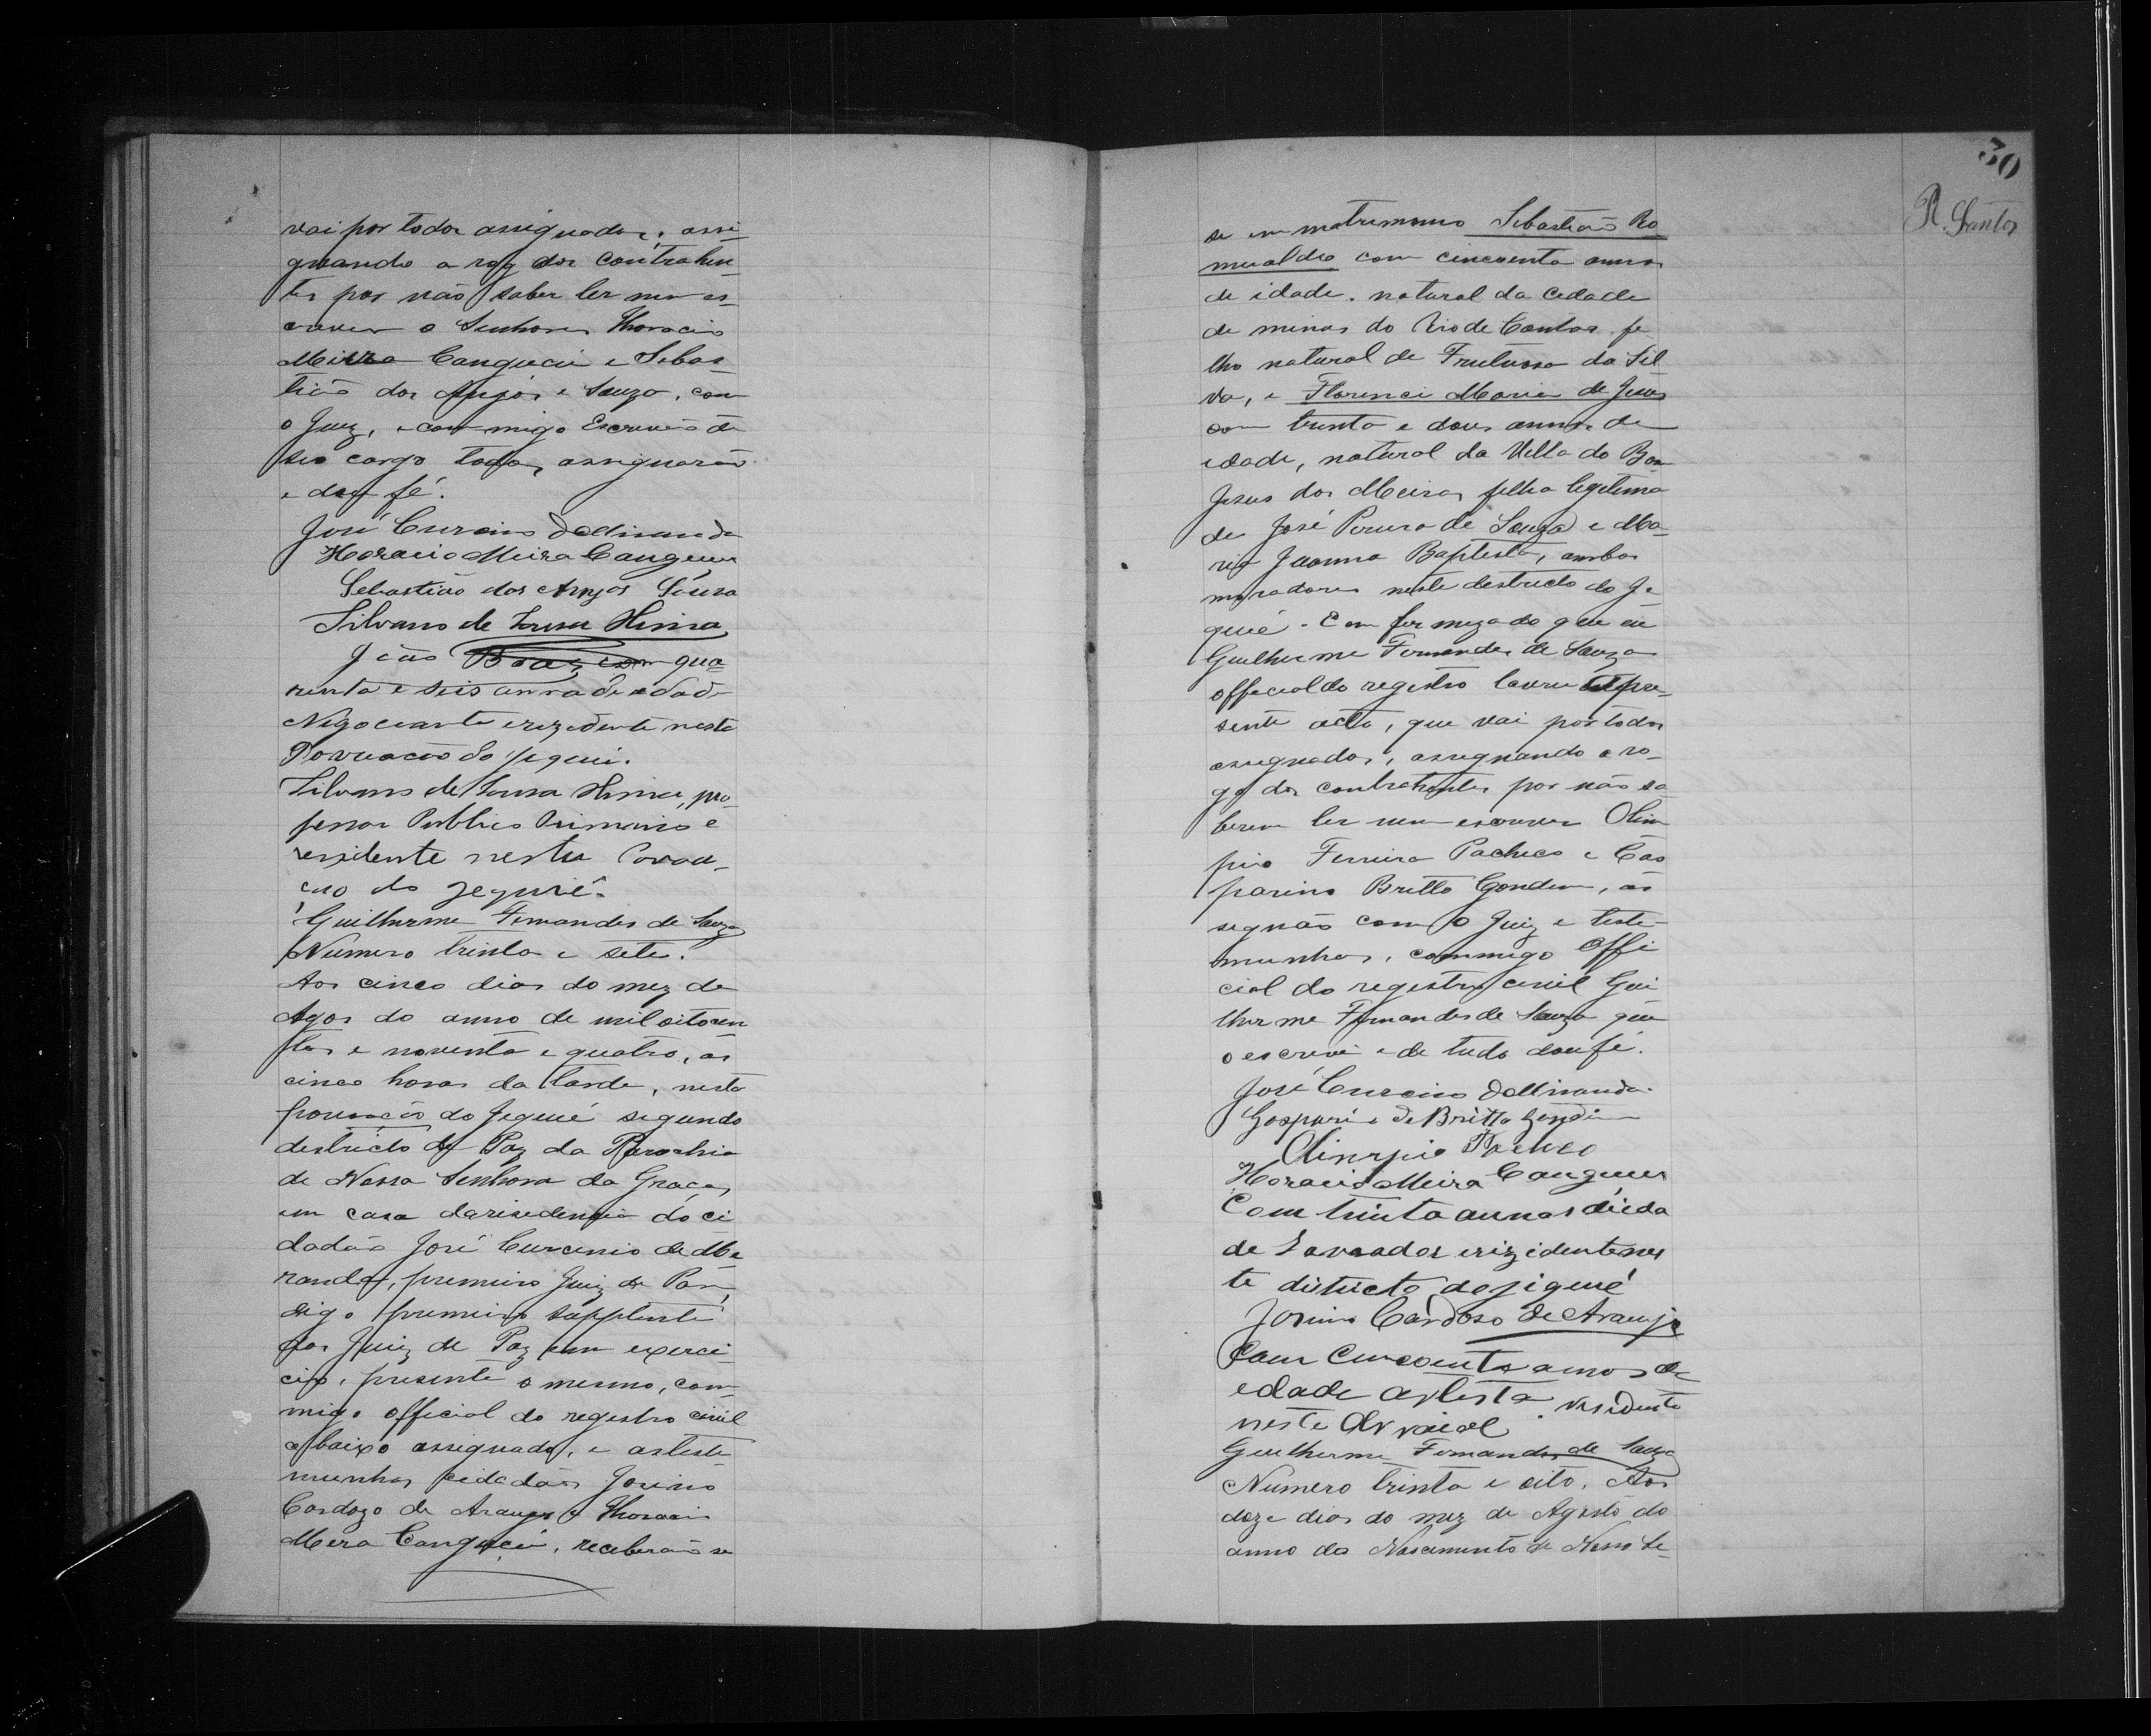 vai por todos assignados, assi-
gnando a rogo dos Contrahen-
tes por não saber ler nem es-
crever o Senhores Horacio
Meira Canguçú e Sebas-
tião dos Anjos e Souza, com
o Juiz, e commigo Escrivão de
seo cargo todos assignarão
e dou fé.
José Curcino de Miranda
Horacio Meira Canguçu
Sebastião dos Anjos Souza
Silvano de Sousa
João Braz com qua-
renta e seis annos de edade
Negociante e rezidente nesta
Povuação do Jequié.
Silvano de Sousa pro-
fessor Publico Primario e
residente nesta Povoa-
ção do Jequié.
Guilherme Fernandes de Souza
Número trinta e sete.
Aos cinco dias do mez de
Agos do anno de mil oitocen
tos e noventa e quatro, ás
cinco horas da tarde, nesta
povoação do Jequié segundo
destricto de Paz da Parochia
de Nossa Senhora da Graça,
em casa da risedencia do ci
dadão José Curcinio de Me
randa, premeiro Juiz de Paz,
digo premeiro supplente
dos Juiz de Paz em exerci-
cio, presente o mesmo, com-
migo official do registro civil
abaixo assignado, e as teste-
munhas cidadãos Josino
Cardozo de Araujo e Horacio
Mera Canguçú, receberão se
30
R. Santos
se em matrimonio Sebastião Ro
mualdo com cincoenta annos
de idade, natural da Cidade
de minas do Rio de Contas fe
lho natural de Frutuosa da Sil
va, e Florenci Maria de Jesus
com trinta e dous annos de
edade, natural da Villa do Bom
Jesus dos Meiras filha legitima
de José Pereira de Souza e Ma-
ria Joanna Baptista, ambos
moradores neste destricto do Je
quié. Em firmeza do que eu
Guilherme Fernandes de Souza
official do registro lavrei o pre-
sente acto, que vai por todos
assignados, assignando a ro-
go dos contrahentes por não sa
berem ler nem escrever Olim
pio Ferreira Pacheco e Gas
parino Britto Gondim, as
segnão com o Juiz e teste-
munhas, commigo Offi
cial do registro civil Gui
lherme Fernandes de Souza que
o escrevi e de tudo dou fé.
José Curcino de Miranda
Gasparino de Britto Gondim
Olimpio Pacheco
Horacio Meira Canguçu
Com trinta annos de ida
de Lavrador e rizidente nes
te districto do jiquié
Josino Cardoso de Araujo
Com Cincoenta annos de
edade artista residente
neste Arraial
Guilherme Fernandes de Souza
Numero trinta e oito. Aos
doze dias do mez de Agosto do
anno do Nascimento de Nosso Se-